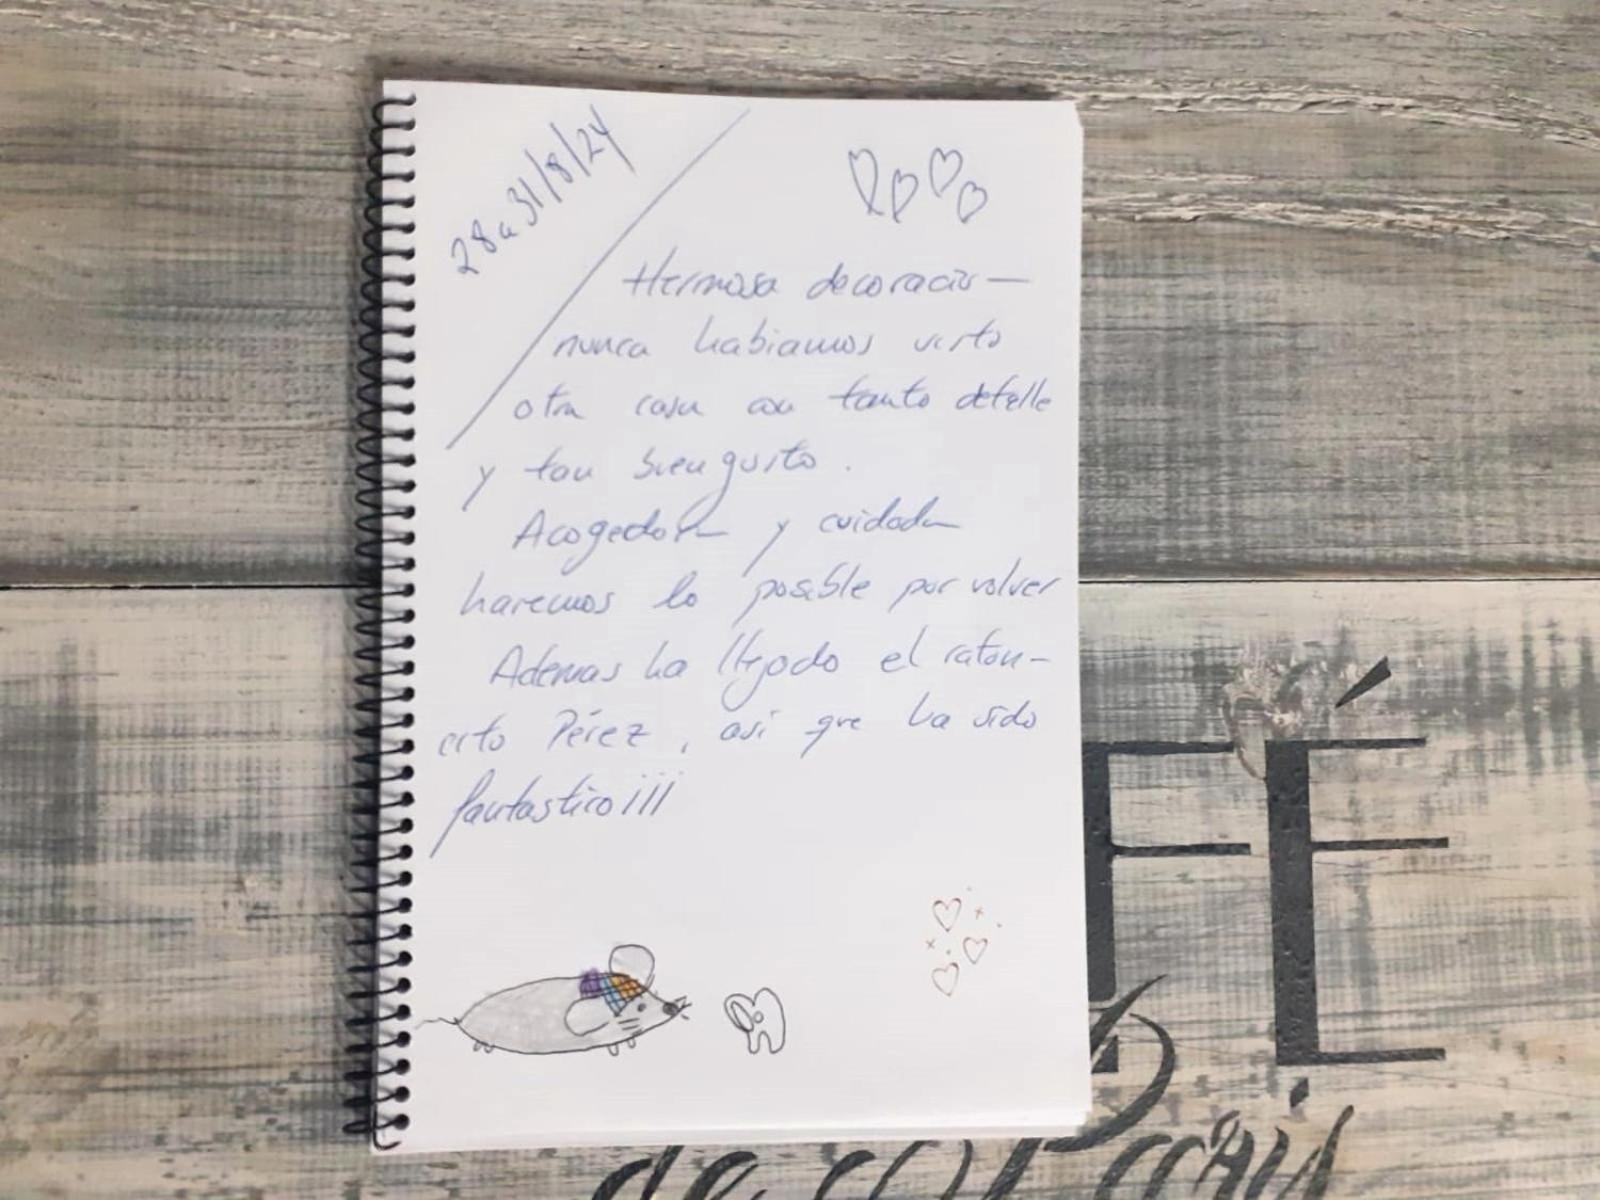 28 a 31/8/24
Hermosa decoración
nunca habiamos visto
otra casa con tanto detalle
y tan buen gusto.
Acogedora y cuidada
haremos lo posible por volver
Ademas ha llegado el raton-
cito Pérez, asi que ha sido
fantastico¡¡¡
FÉ
de Paris